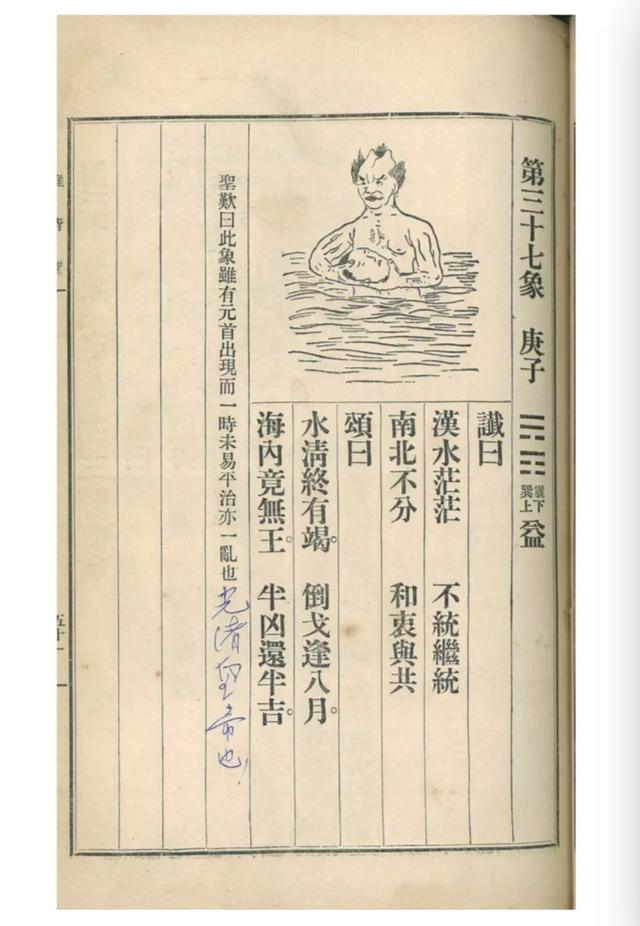 第三十七象 庚子 震下 巽上 益
讖曰
漢水茫茫 不統繼統
南北不分 和衷與共
頌曰
水清終有竭。 倒戈逢八月。
海內竟無王。 半凶還半吉。
聖歎曰此象雖有元首出現而一時未易平治亦一亂也
光渚皇帝也
五十一